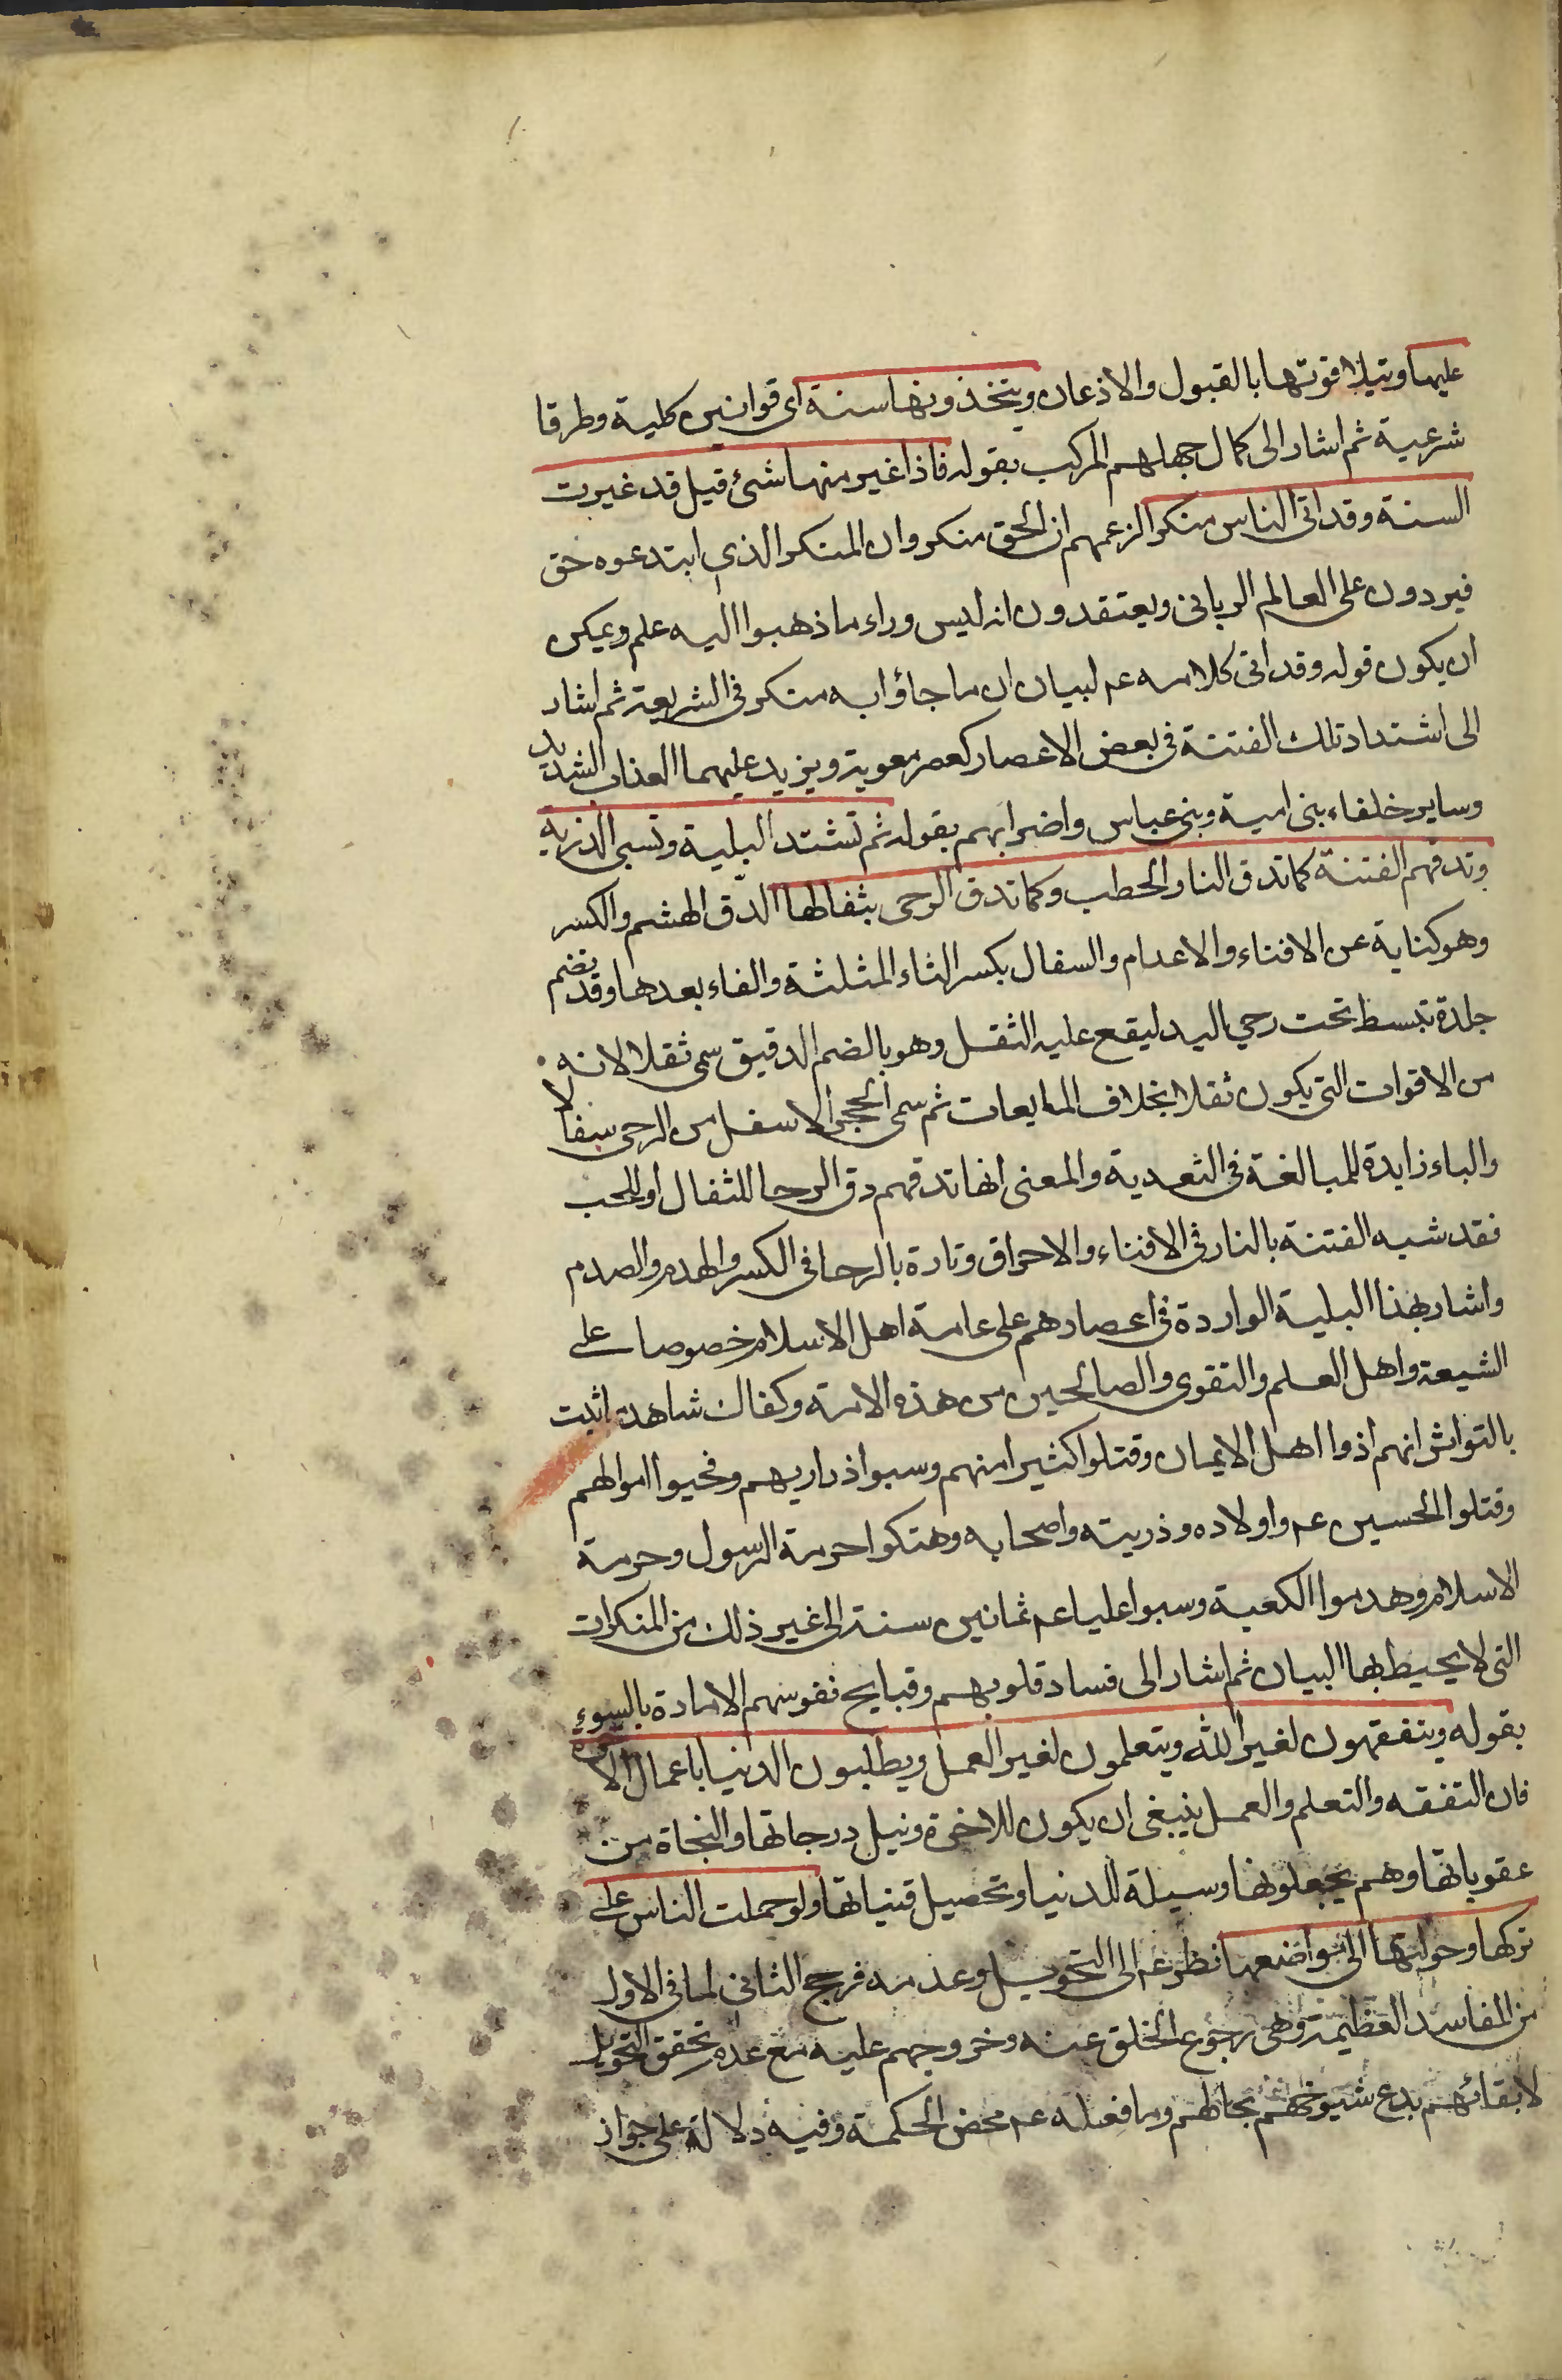 عليها ويتلافوتها بالقبول والاذعان ويتخذونها سنة اى قوانين كلية وطرقا
شرعية ثم اشار الى كمال جهلهم المركب بقوله فاذا غير منها شئ قيل قد غيرت
السنة وقد اتى الناس منكرا لزعمهم ان الحق منكر وان المنكر الذي ابتدعوه حق
فيردون على العالم الربانى ويعتقدون انه ليس وراء ما ذهبوا اليه علم ويمكن
ان يكون قوله وقد اتى كلامه عم لبيان ان ما جاؤا به منكر فى الشريعة ثم اشار
الى اشتداد تلك الفتنة فى بعض الاعصار كعصر معوية ويزيد عليهما العذاب الشديد
وساير خلفاء بنى امية وبنى عباس واضرابهم بقوله ثم تشتد البلية وتسبى الذرية
وتدقهم الفتنة كما تدق النار الحطب وكما تدق الرحى بثفالها الدق الهشم والكسر
وهو كناية عن الافناء والاعدام والسفال بكسر الثاء المثلثة والفاء بعدها وقد تضم
جلدة تبسط تحت رحى اليد ليقع عليه الثقل وهو بالضم الدقيق سمى ثقلا لانه
من الاقوات التى يكون ثقلا بخلاف المايعات ثم سمى الحجر الاسفل من الرحى سفالا
والباء زايدة للمبالغة فى التعدية والمعنى انها تدقهم دق الرحا للثفال او للحب
فقد شبه الفتنة بالنار فى الافناء والاحراق وتارة بالرحا فى الكسر والهدم والصدم
واشار بهذا البلية الواردة فى اعصارهم على عامة اهل الاسلام خصوصا على
الشيعة واهل العلم والتقوى والصالحين من هذه الامة وكفاك شاهدا ثبت
بالتواتر انهم اذوا اهل الايمان وقتلوا كثيرا منهم وسبوا ذراريهم وفحيوا اموالهم
وقتلوا الحسين عم واولاده وذريته واصحابه وهتكوا حرمة الرسول وحرمة
الاسلام وهدموا الكعبة وسبوا عليا عم ثمانين سنة الى غير ذلك من المنكرات
التى لا يحيط بها البيان ثم اشار الى فساد قلوبهم وقبايح نفوسهم الامارة بالسوء
بقوله ويتفقهون لغير الله ويتعلمون لغير العمل ويطلبون الدنيا باعمال الاخرة
فان التفقه والتعلم والعمل ينبغى ان يكون للاخرة ونيل درجاتها والنجاة من
عقوباتها وهم يجعلونها وسيلة للدنيا وتحصيل قنياتها ولو حملت الناس على
تركها وحولتها الى مواضعها نظر عم الى التحويل وعدمه فرجح الثانى لما فى الاول
من المفاسد العظيمة وهى رجوع الخلق عنه وخروجهم عليه مع عدم تحقق التحويل
لابقائهم بدع شيوخهم بحالهم وما فعله عم محض الحكمة وفيه دلالة على جواز